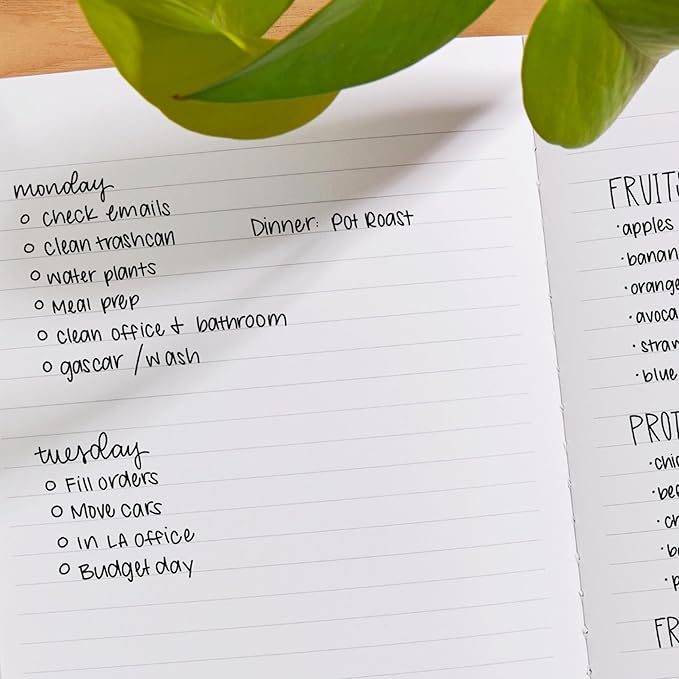 monday
check emails
clean trashcan
Dinner: Pot Roast
water plants
Meal prep
clean office + bathroom
gas car / wash
tuesday
Fill orders
Move cars
IN LA OFFICE
Budget day
FRUITS
·apples
·banan
·orange
·avoca
·straw
·blue
PROT
·chi
·be
·ch
·b
·p
FR